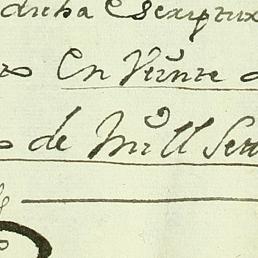 dicha Escriptur
en Veinte
de Mill Set